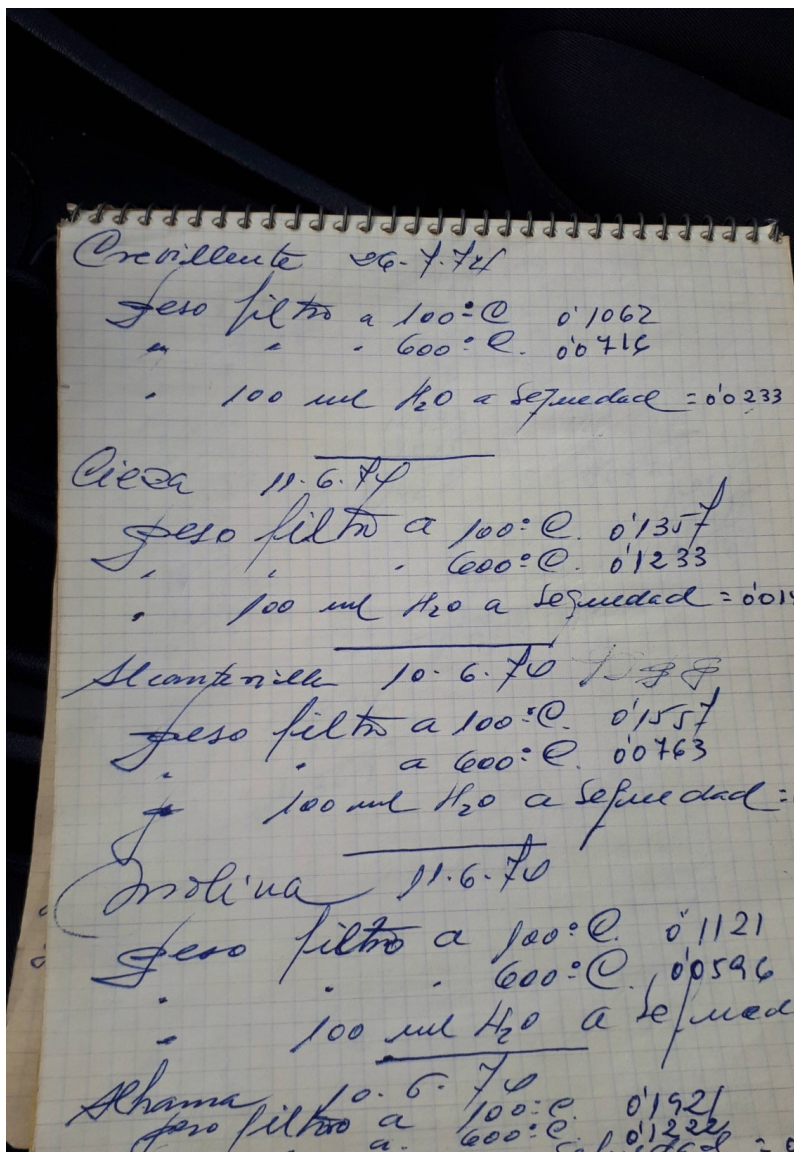 Crevillente 26-7-74
peso filtro a 100º C 0'1062
" " " 600º C. 0'0716
" 100 ml H2O a sequedad = 0'0233
Cieza 11-6-74
peso filtro a 100º C. 0'1357
" " " 600º C. 0'1233
" 100 ml H2O a sequedad = 0'01
Alcantarilla 10-6-74
peso filtro a 100º C. 0'1557
" " a 600º C. 0'0763
" 100 ml H2O a sequedad =
Molina 11-6-74
peso filtro a 100º C. 0'1121
" " " 600º C. 0'0596
" 100 ml H2O a sequed
Alhama 10-6-74
peso filtro a 100º C. 0'1921
a 600º C. 0'1222